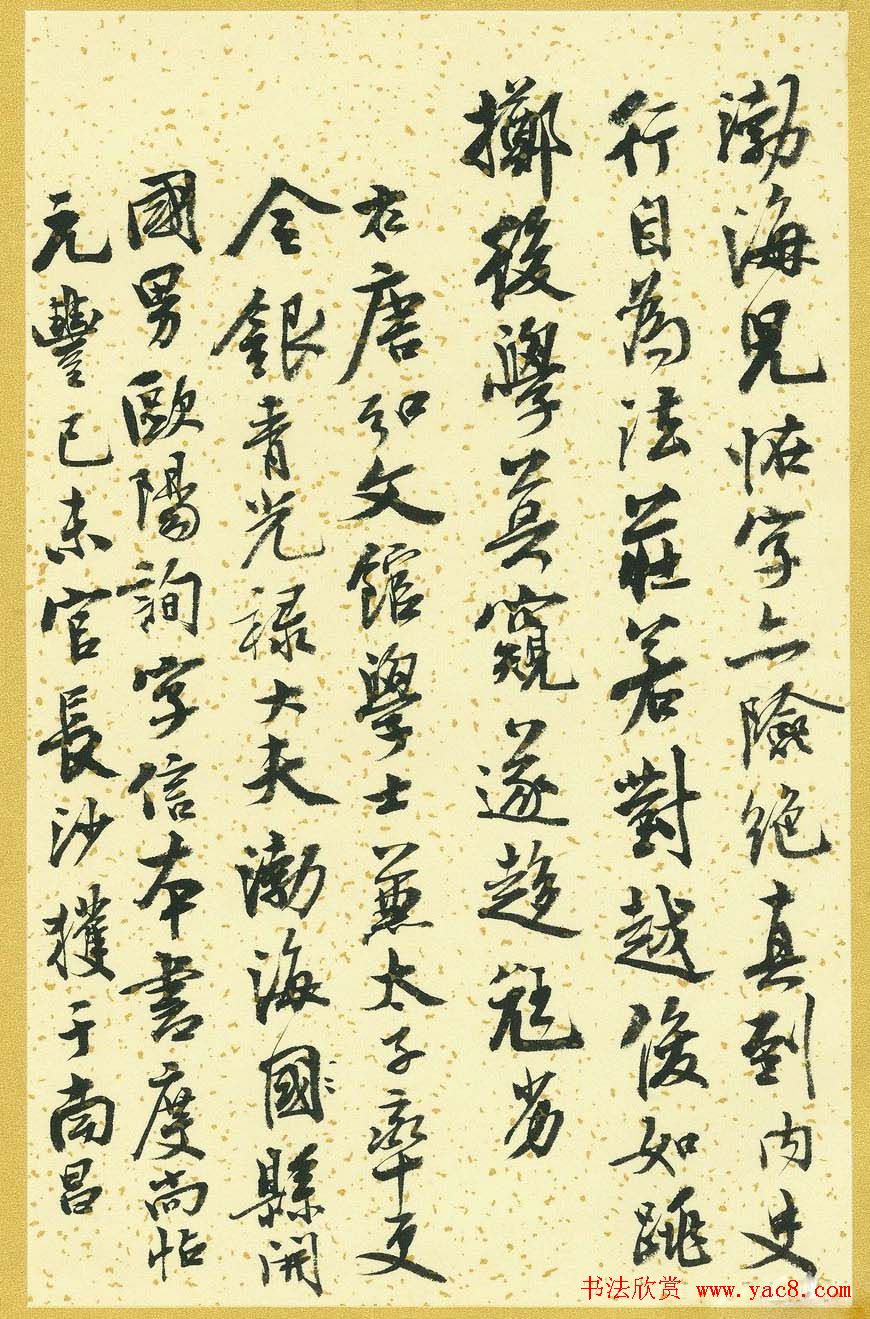 渤海光怪字亦險絕真到內史
行自為法莊若對越俊如跳
擲後學莫窺遂趍尫劣
右唐弘文館學士兼太子率更
令銀青光祿大夫渤海國縣開
國男歐陽詢字信本書度尚帖
元豐己未官長沙獲于南昌
书法欣赏 www.yac8.com